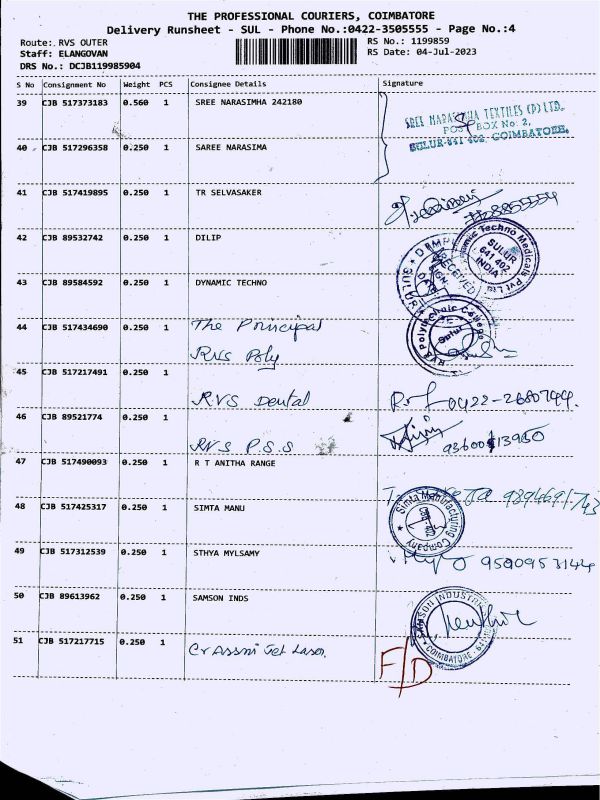 THE PROFESSIONAL COURIERS, COIMBATORE
Delivery Runsheet - SUL - Phone No.:0422-3505555 - Page No.:4
Route: RVS OUTER
RS No.: 1199859
Staff: ELANGOVAN
RS Date: 04-Jul-2023
DRS No.: DCJB119985904
S No Consignment No Weight PCS Consignee Details Signature
39 CJB 517373183 0.560 1 SREE NARASIMHA 242180
SREE NARASIMHA TEXTILES (P) LTD.
POST BOX No: 2,
SULUR-641 402, COIMBATORE.
40 CJB 517296358 0.250 1 SAREE NARASIMA
41 CJB 517419895 1 0.250 TR SELVASAKER
42 CJB 89532742 0.250 1 DILIP
SULUR
641 402
INDIA
43 CJB 89584592 0.250 1 DYNAMIC TECHNO
44 CJB 517434690 0.250 1 The Principal
RVS Poly
RVS Polytechnic College
Sulur
45 CJB 517217491 0.250 1
RVS Dental 0422-2680744.
46 CJB 89521774 0.250 1
RVS P.S.S
47 CJB 517490093 0.250 1 R T ANITHA RANGE
48 CJB 517425317 0.250 1 SIMTA MANU
Simta Manufacturing Company
49 CJB 517312539 0.250 1 STHYA MYLSAMY
9590953144
50 CJB 89613962 0.250 1 SAMSON INDS
SAMSON INDUSTRIES
COIMBATORE
51 CJB 517217715 0.250 1
F/D